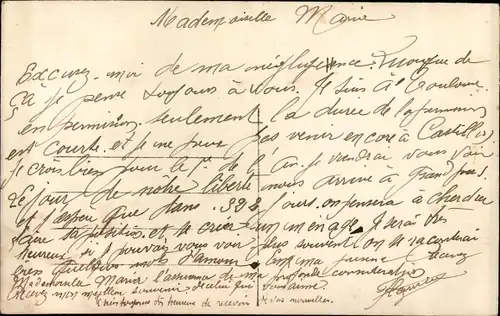 Mademoiselle Marie
Excusez-moi de ma négligence. Quoique de
Ça je pense toujours à vous. Je suis à Toulouse
en permission, seulement la durée de la permission
est courte. et je ne peux pas venir encore à Castillon
je crois bien pour le 1er de l An. je viendrai vous voir
le jour de notre liberté mais arrive à grand pas.
et j'espère que dans . 398 jours. on pensera à chercher
faire sa position et se créer un ménage. Je serai très
heureux si je pouvais vous voir plus souvent on se raconterai
quelques mots d'amour
Mademoiselle Marie l'assurance de ma profonde considération
Recevez mon meilleur souvenir de celui qui vous aime
très heureux de recevoir de vos nouvelles.